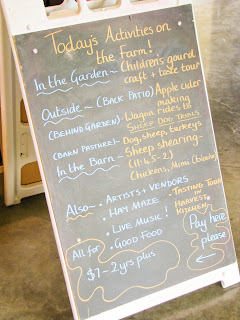 Today's Activities on
the Farm!
In the Garden ~ Childrens gourd
craft + taste tour
Outside ~ (Back Patio) Apple cider
making
(Behind Garden) ~ Wagon rides to
Sheep Dog Trials
(Barn Pasture) ~ Dog, sheep, turkeys
In the Barn ~ Sheep shearing ~
(11:45-2)
Chickens, Mimi
Also ~ • Artists + Vendors
• Hay Maze
• Live Music!
• Good Food
Tasting Tour
in
Harvest
Kitchen
All for
$7 ~ 2yrs plus
Pay here
please